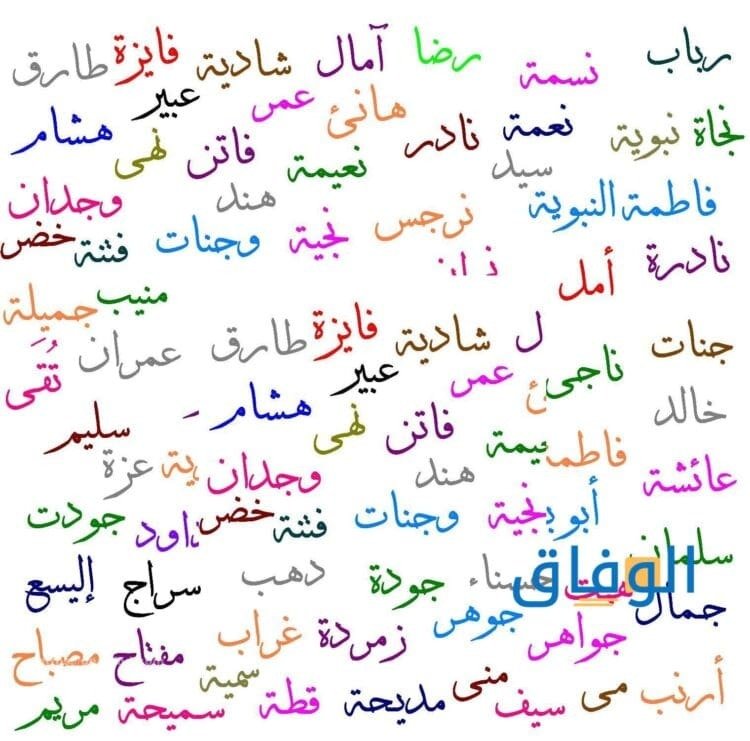 رباب نسمة رضا آمال شادية فايزة طارق
هانئ عمر عبير
نجاة نبوية نعمة نادر فاتن نهى هشام
سيد نعيمة هند وجدان
فاطمة النبوية نرجس نجية وجنات فتنة خضر
نادرة أمل منيب جميلة
جنات ل شادية فايزة طارق عمران
ناجى ئ عمر عبير تُقَى
خالد فاتن نهى هشام سليم
عائشة فاطمة يمة هند وجدان ية عزة
أبو نجية وجنات فتنة خضر اود جودت
سلمان حسناء جودة دهب سراج إليسع
الوفاق
جمال جواهر جوهر زمردة غراب مفتاح مصباح
أرنب مى سيف منى مديحة قطة سمية سميحة مريم